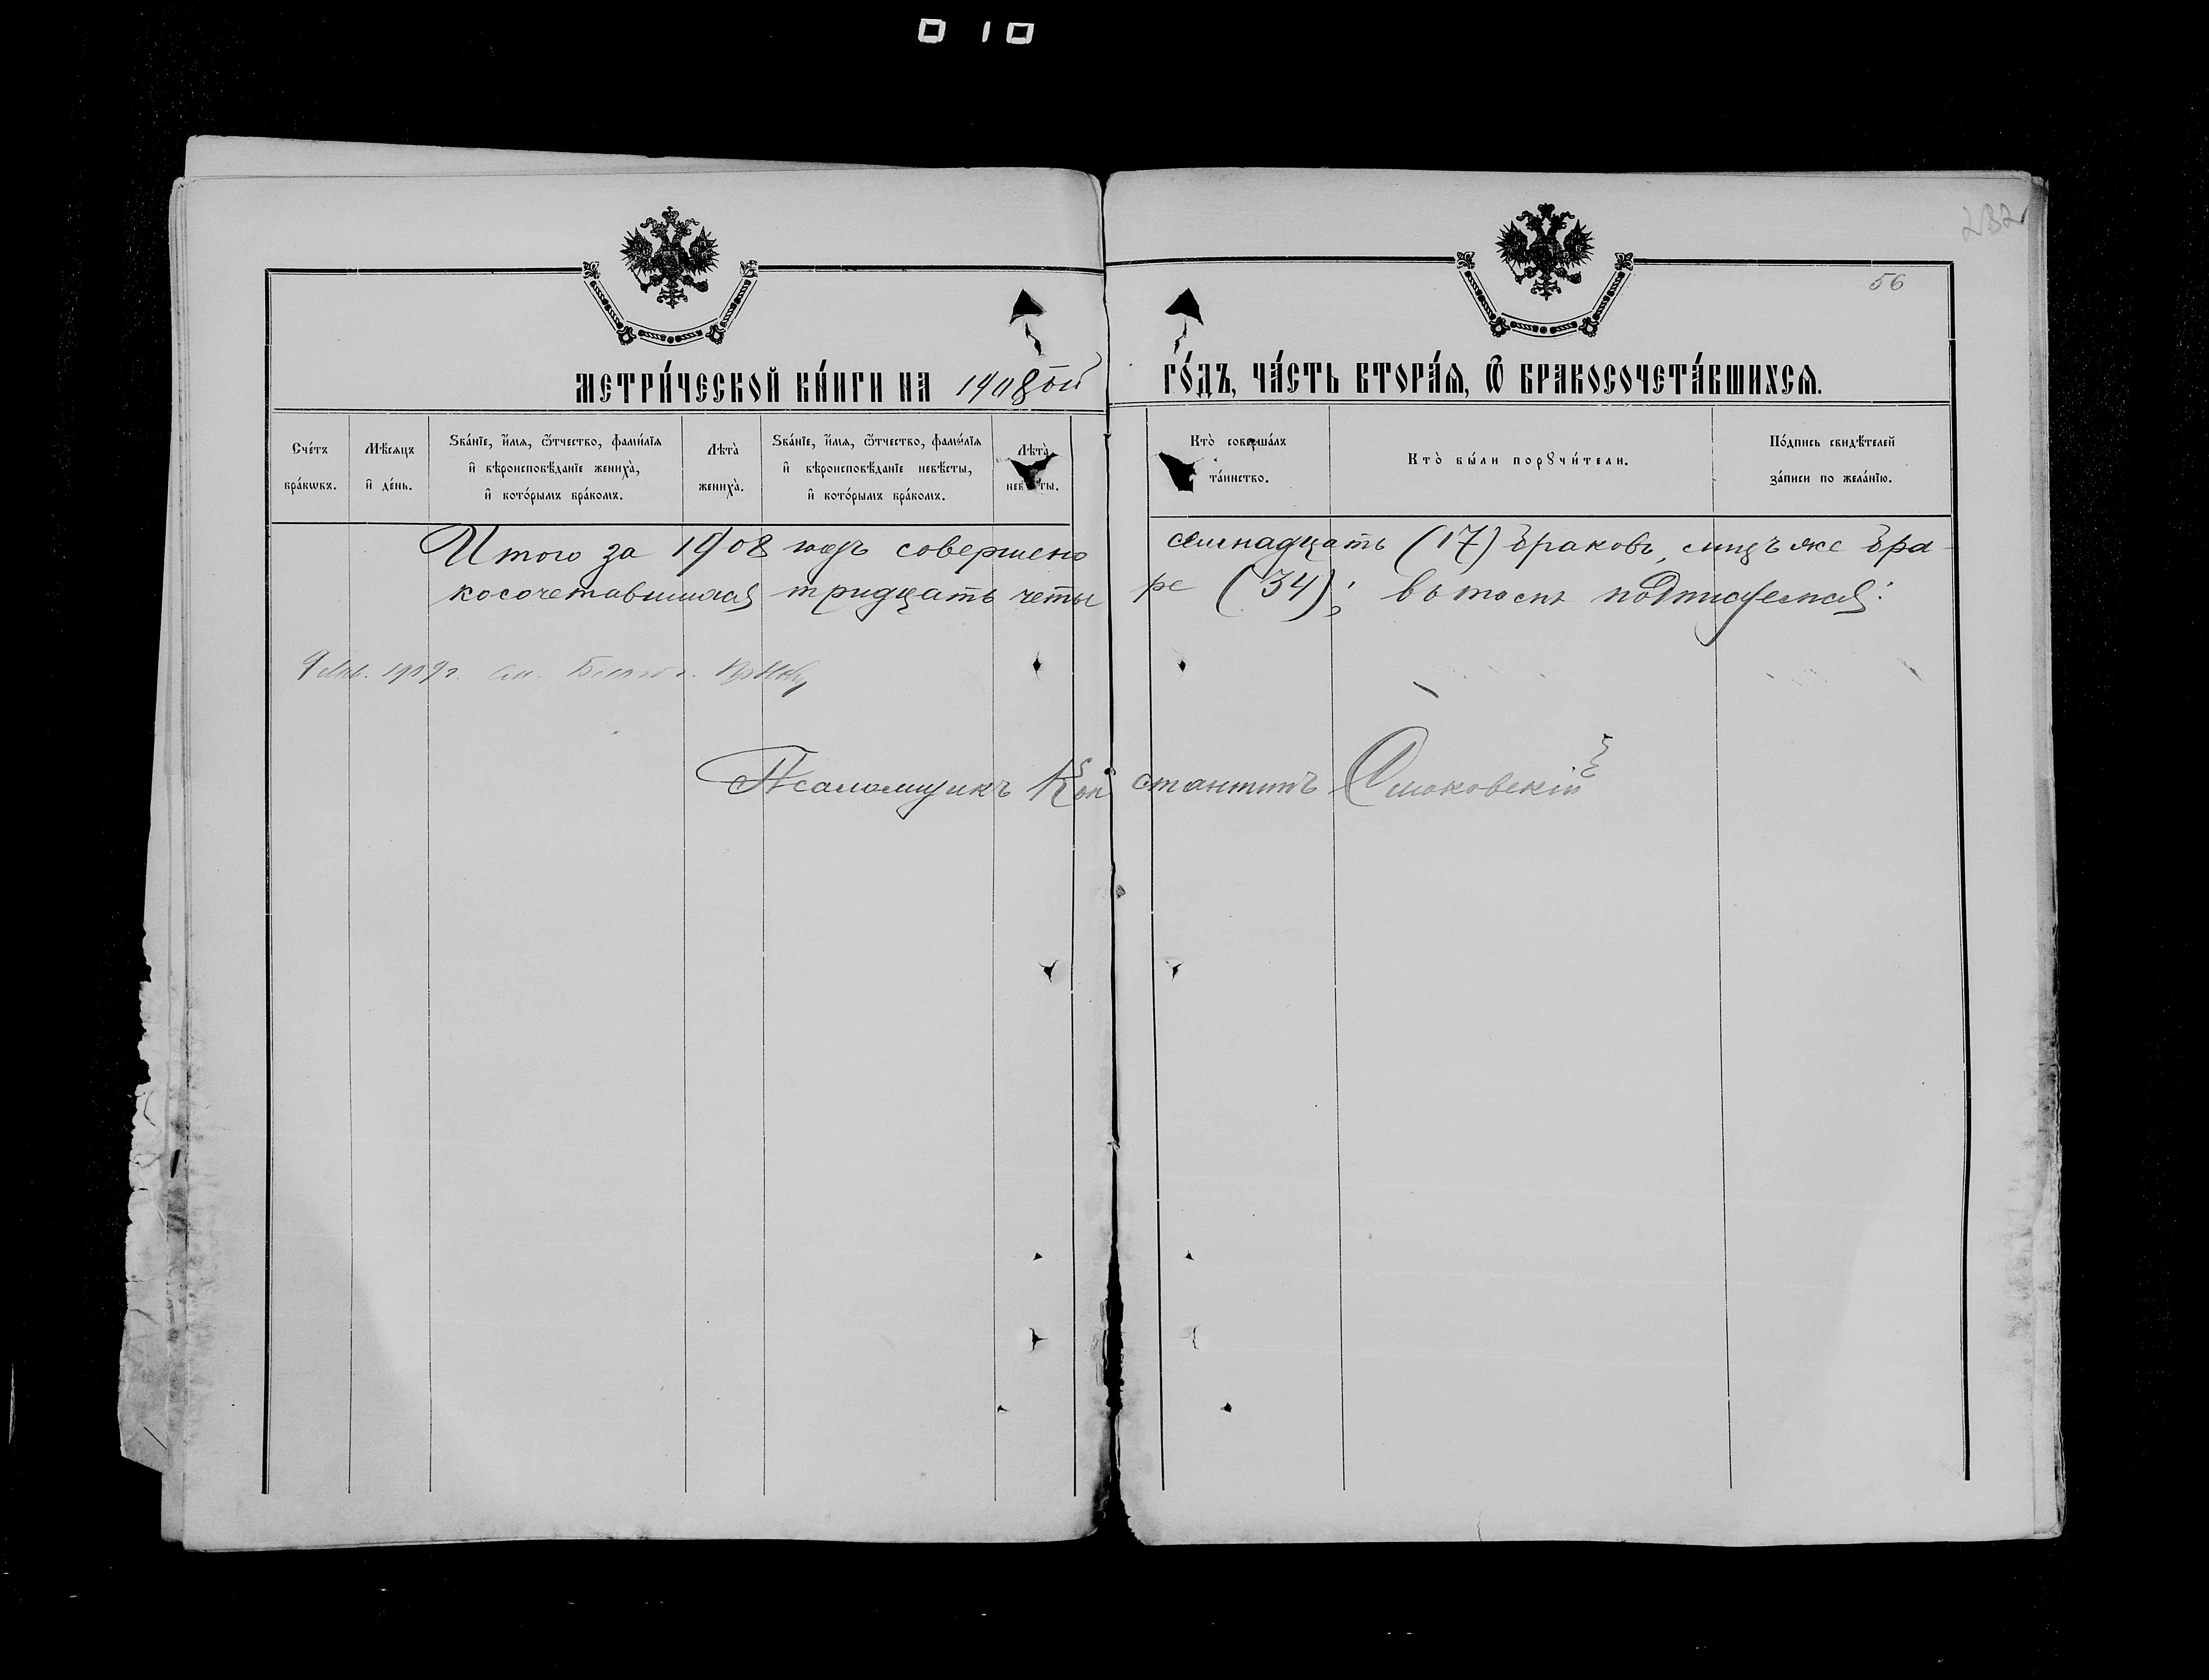 010
232
56
МЕТРИ́ЧЕСКОЙ КНИ́ГИ НА 1908ой ГО́ДЪ, ЧА́СТЬ ВТОРА́Я, Ѿ БРАКОСОЧЕТА́ВШИХСЯ.
Сче́тъ бра́кѡвъ.
Мѣ́сяцъ и҆ де́нь.
Зва́нїе, и҆́мя, ѻ҆́тчество, фами́лїя и҆ вѣроисповѣ́данїе жениха̀, и҆ кото́рымъ бра́комъ.
Лѣта̀ жениха̀.
Зва́нїе, и҆́мя, ѻ҆́тчество, фами́лїя и҆ вѣроисповѣ́данїе невѣ́сты, и҆ кото́рымъ бра́комъ.
Лѣта̀ невѣ́сты.
Кто̀ соверша́лъ та́инство.
Кто̀ бы́ли порꙋчи́тели.
По́дпись свидѣ́телей за́писи по жела́нїю.
Итого за 1908 годъ совершено семнадцать (17) браковъ, лицъ же бра-
косочетавшихся тридцать четыре (34); въ томъ подписуемся:
9 Янв. 1909 г.
Псаломщикъ Константинъ